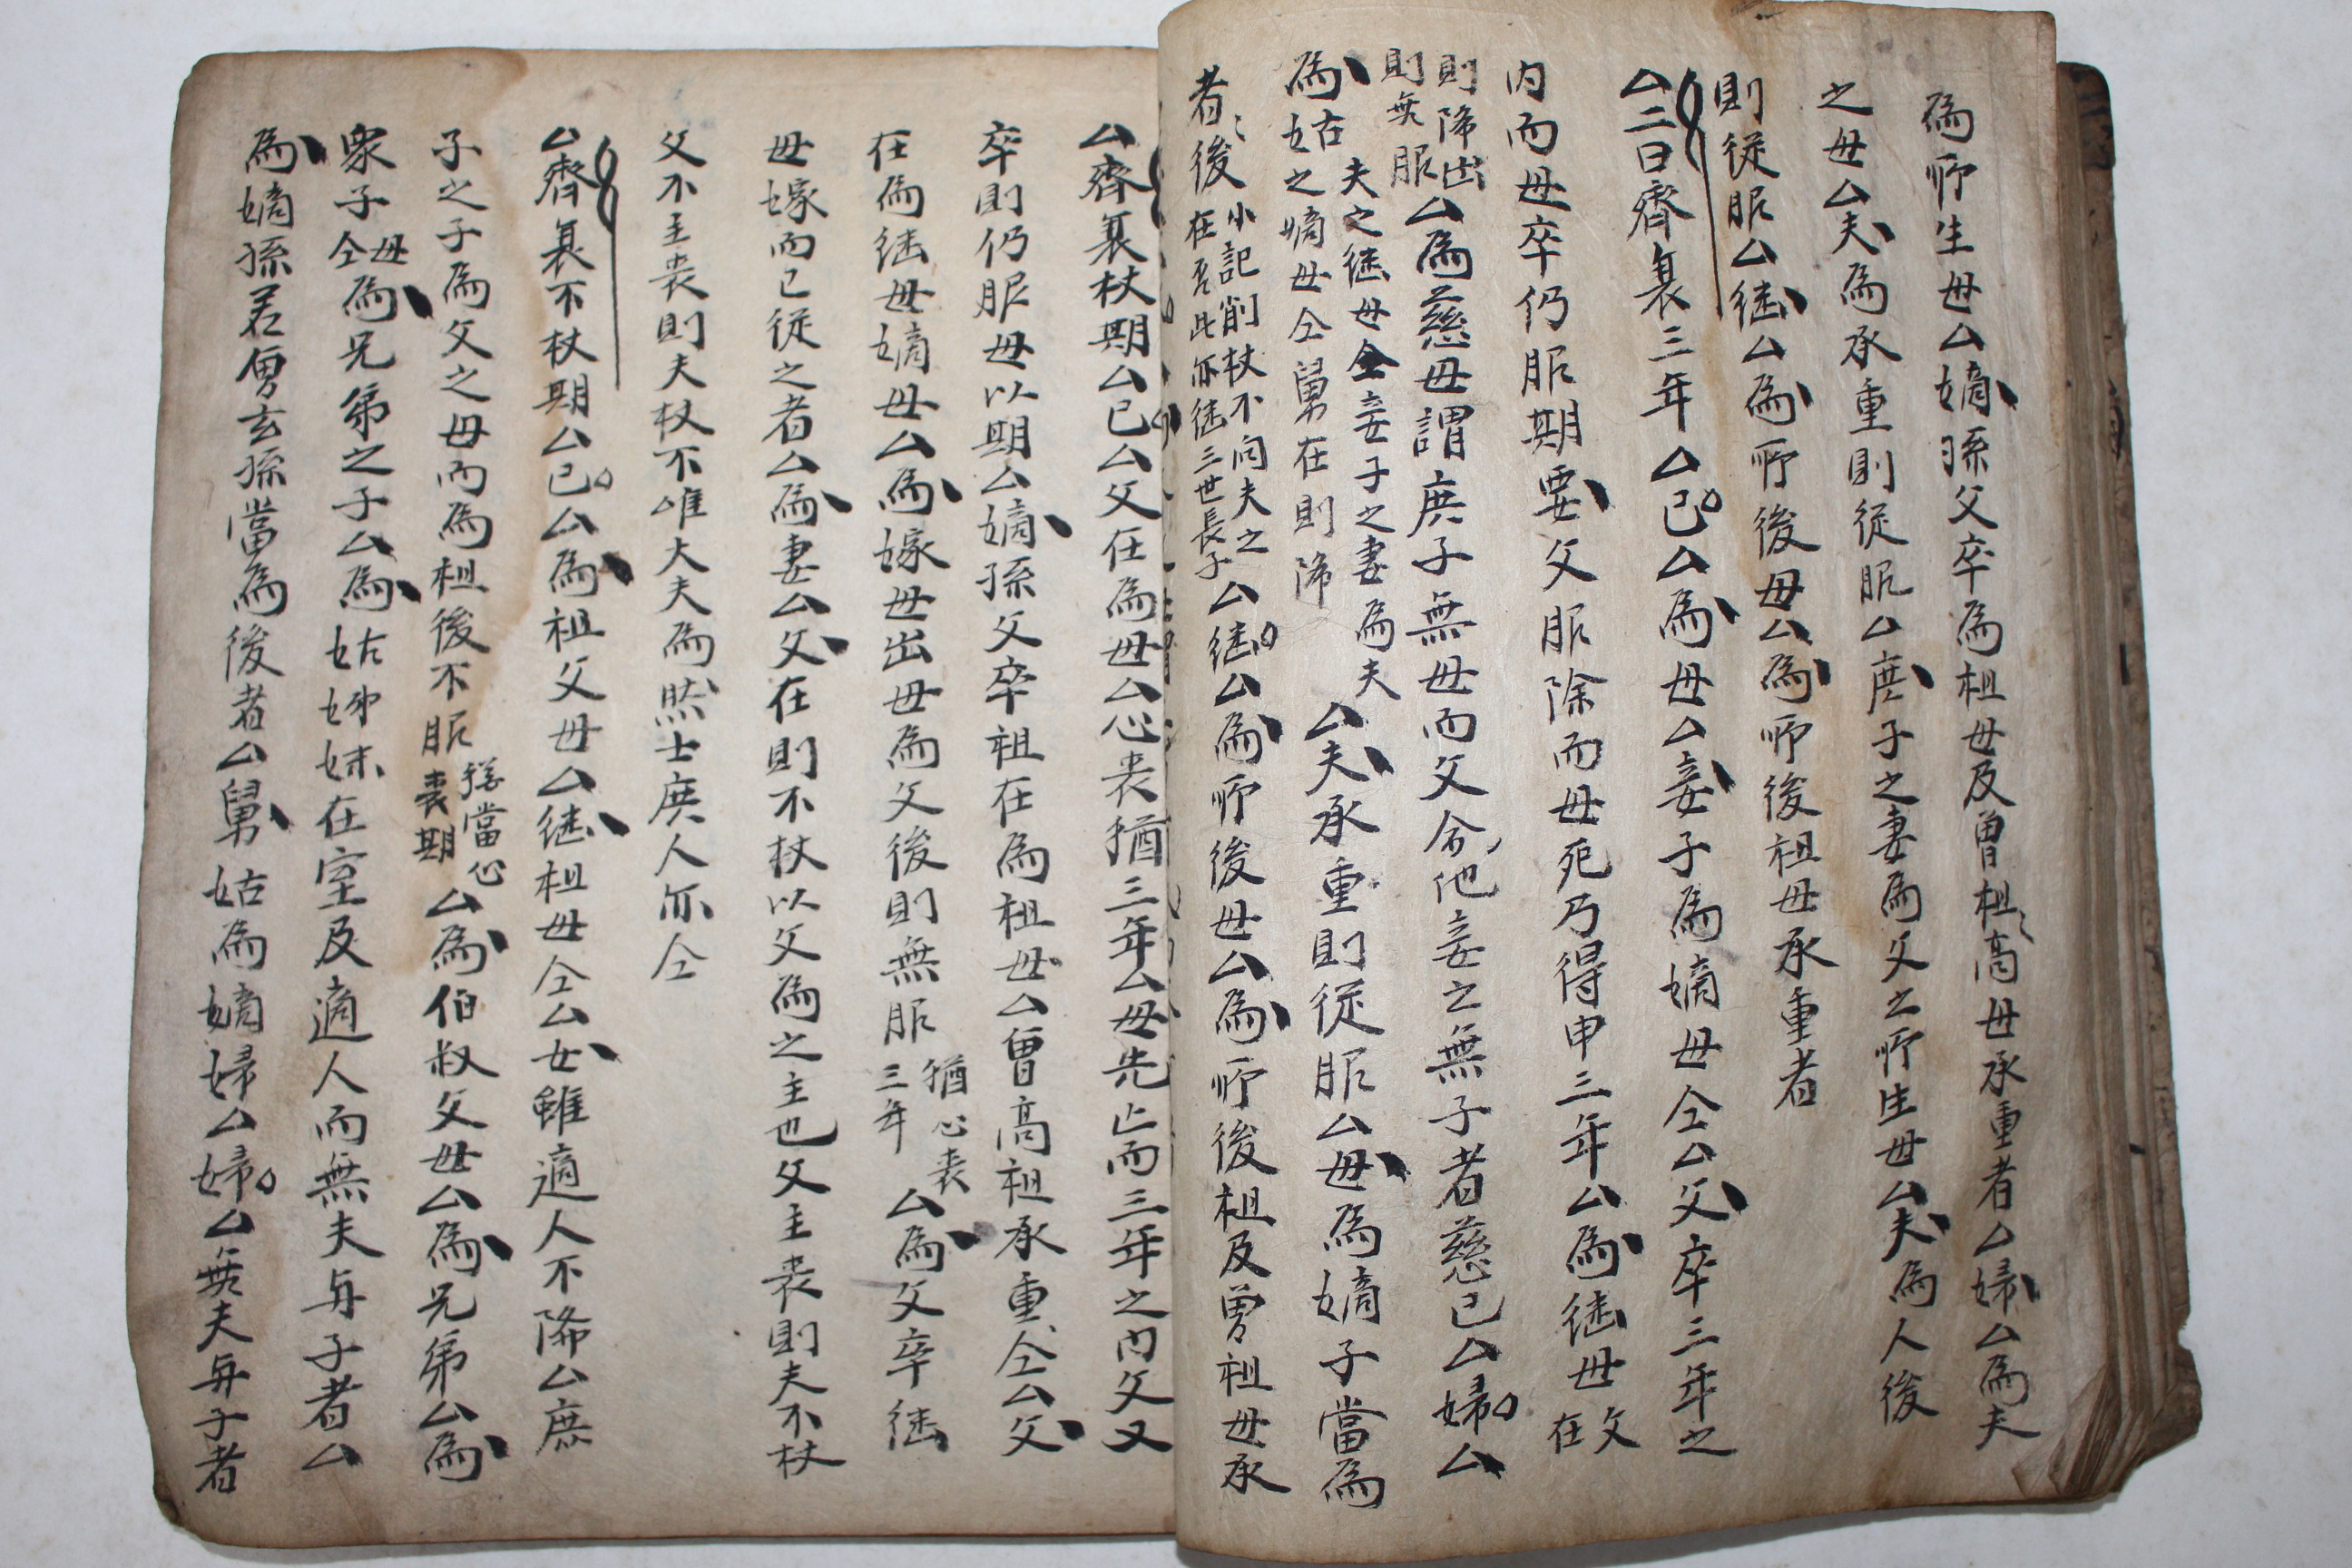 為所生母厶嫡孫父卒為祖母及曾祖高母承重者厶婦厶為夫
之母厶夫為承重則從服厶庶子之妻為父之所生母厶夫為人後
則從服厶继厶為所後母厶為所後祖母承重者
厶二曰齊衰三年厶已厶為母厶妾子為嫡母仝厶父卒三年之
内而母卒仍服期要父服除而母死乃得申三年厶為继母父在
則降出則無服厶為慈母謂庶子無母而父命他妾之無子者慈已厶婦厶
為夫之继母仝妾子之妻為夫姑之嫡母仝舅在則降厶夫承重則從服厶母為嫡子當為
者後小記削杖不问夫之在否此亦继三世長子厶继厶為所後母厶為所後祖及曾祖母承
厶齊衰杖期厶已厶父在為母厶心丧猶三年厶母先亡而三年之内父又
卒則仍服母以期厶嫡孫父卒祖在為祖母厶曾高祖承重仝厶父
在為继母嫡母厶為嫁母出母為父後則無服猶心丧三年厶為父卒继
母嫁而已從之者厶為妻厶父在則不杖以父為之主也父主丧則夫不杖
父不主丧則夫杖不唯大夫為然士庶人亦仝
厶齊衰不杖期厶已厶為祖父母厶继祖母仝厶女雖適人不降厶庶
子之子為父之母而為祖後不服當心丧期厶為伯叔父母厶為兄弟厶為
衆子女仝為兄弟之子厶為姑姊妹在室及適人而無夫与子者厶
為嫡孫若曾玄孫當為後者厶舅姑為嫡婦厶婦厶無夫与子者